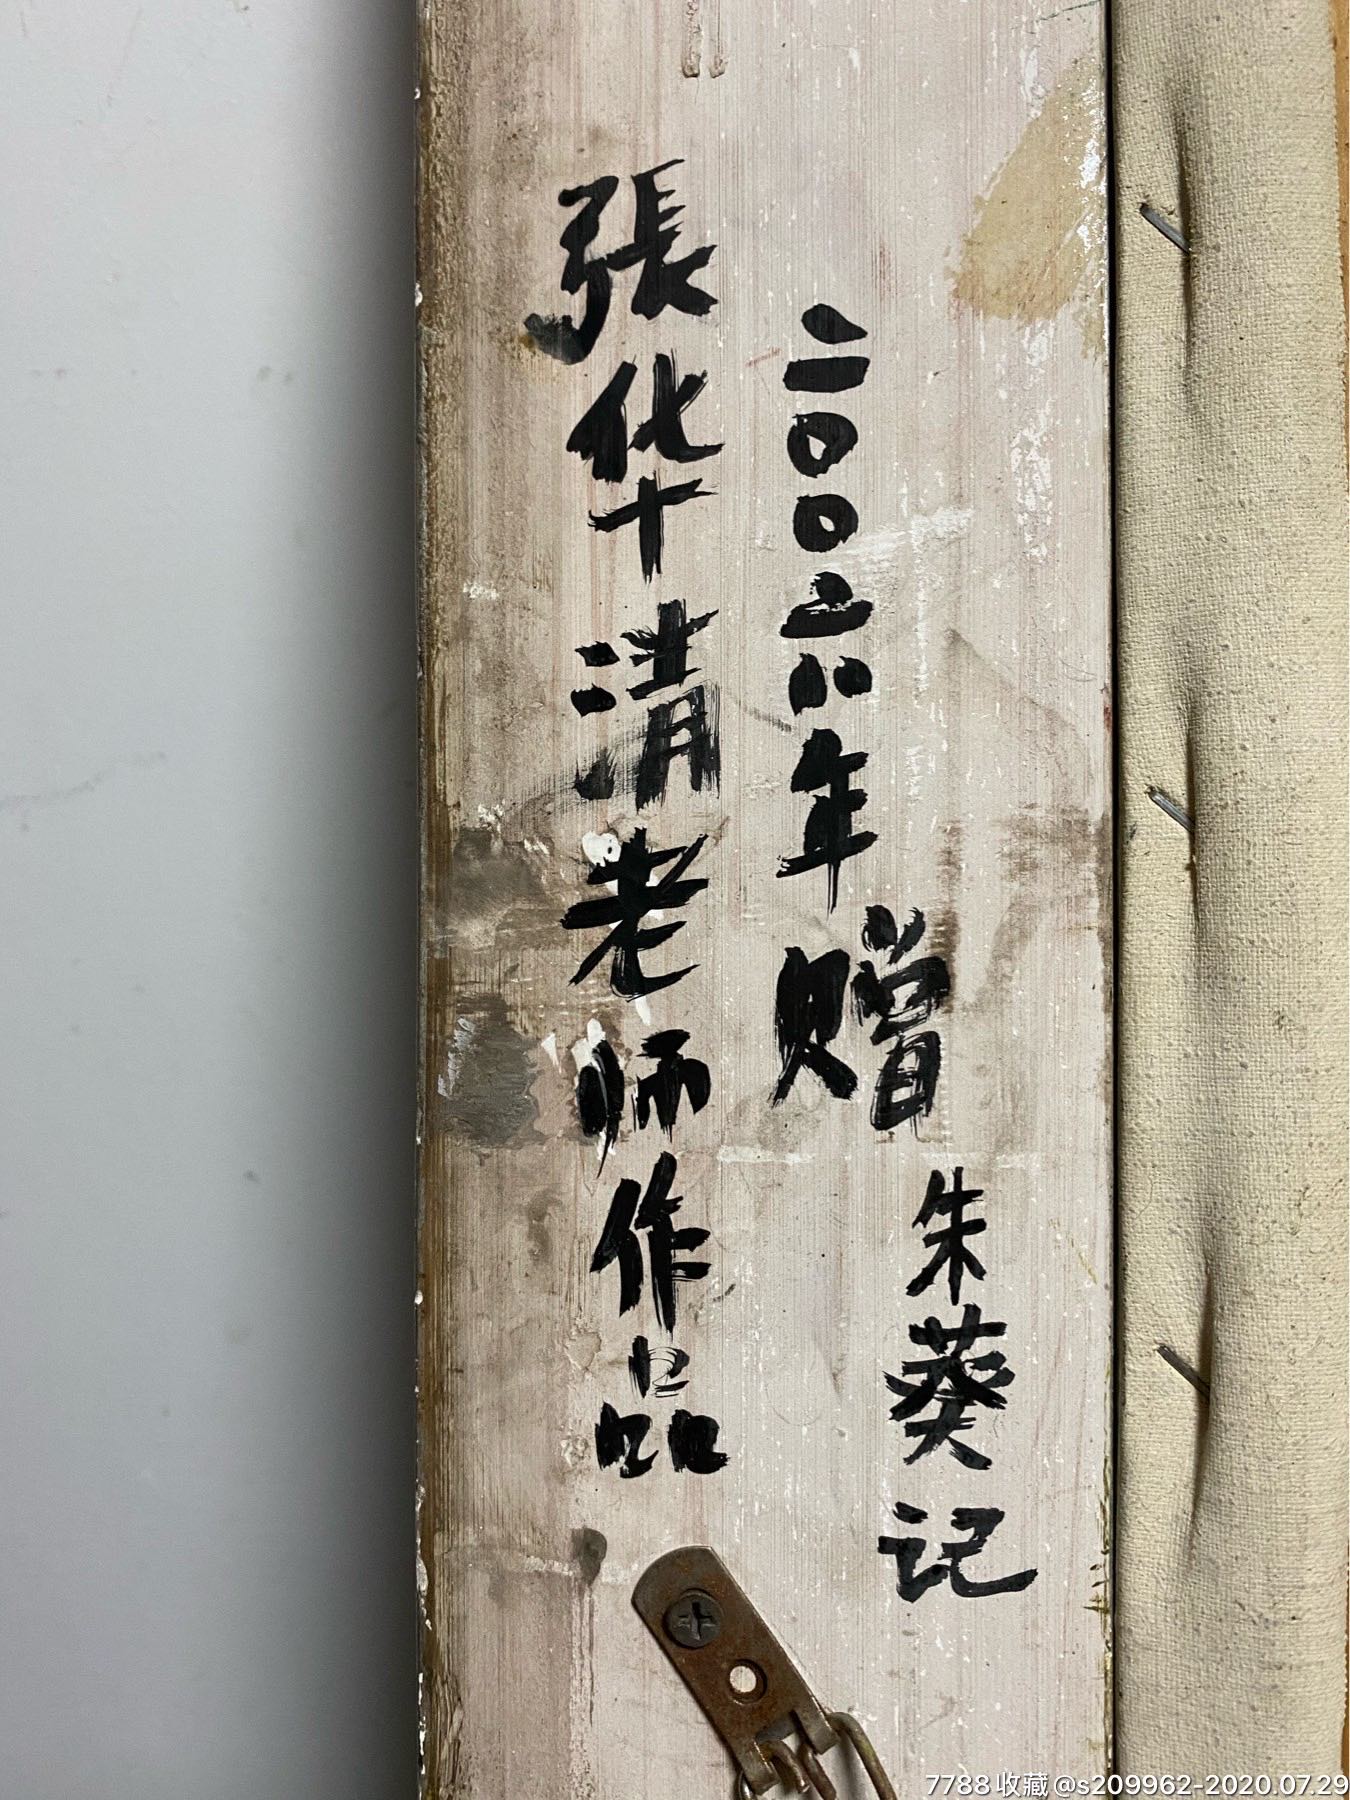 張华清老师作品
二00六年赠
朱葵记
7788收藏@s209962-2020.07.29